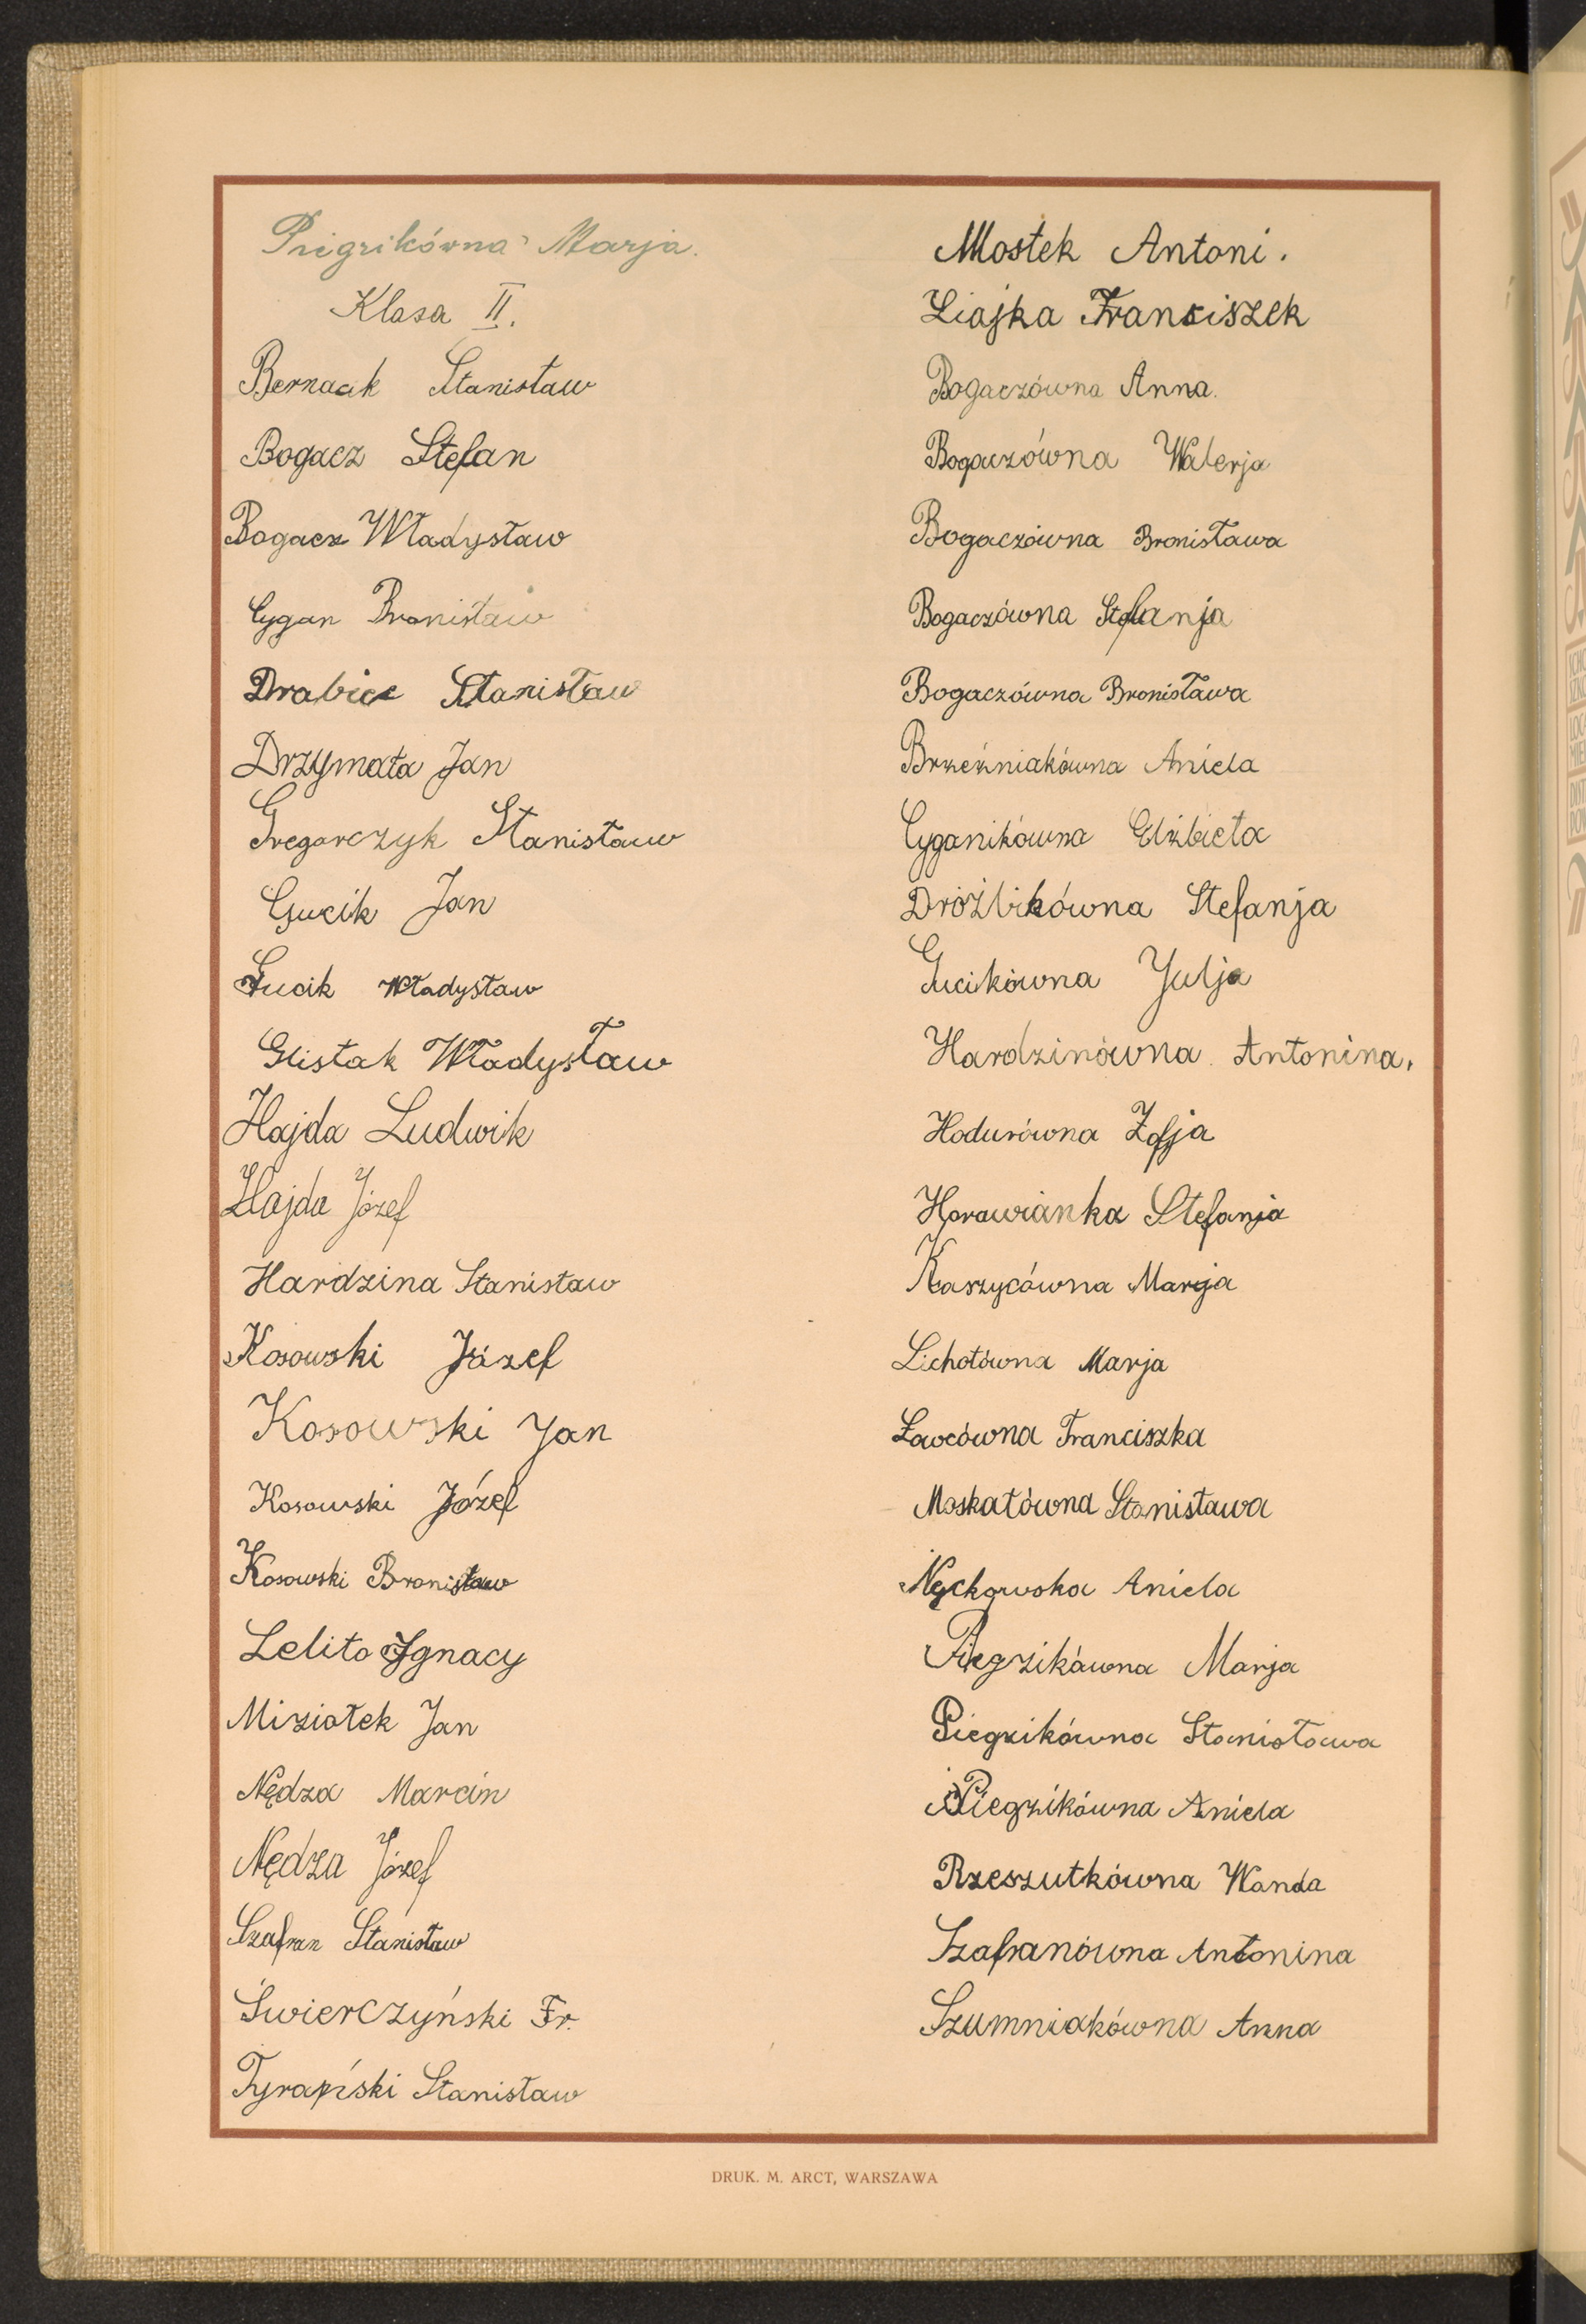 Piegzikówna Marja.
Klasa II.
Bernacik Stanisław
Bogacz Stefan
Bogacz Władysław
Cygan Bronisław
Drabicz Stanisław
Drzymała Jan
Gregorczyk Stanisław
Gucik Jan
Gucik Władysław
Glistak Władysław
Hajda Ludwik
Hajda Józef
Hardzina Stanisław
Kosowski Józef
Kosowski Jan
Kosowski Józef
Kosowski Bronisław
Lelito Ignacy
Miziołek Jan
Nędza Marcin
Nędza Józef
Szafran Stanisław
Świerczyński Fr.
Tyrański Stanisław
Mostek Antoni.
Ziajka Franciszek
Bogaczówna Anna.
Bogaczówna Walerja
Bogaczówna Bronisława
Bogaczówna Stefanja
Bogaczówna Bronisława
Brzeźniakówna Aniela
Cyganikówna Elżbieta
Dróżbikówna Stefanja
Gucikówna Julja
Hardzinówna Antonina.
Hodurówna Zofja
Horawianka Stefanja
Kaszycówna Marja
Lichotówna Marja
Ławcówna Franciszka
Moskałówna Stanisława
Aniela
Piegzikówna Marja
Piegzikówna Stanisława
Piegzikówna Aniela
Rzeszutkówna Wanda
Szafranówna Antonina
Szumniakówna Anna
DRUK. M. ARCT, WARSZAWA